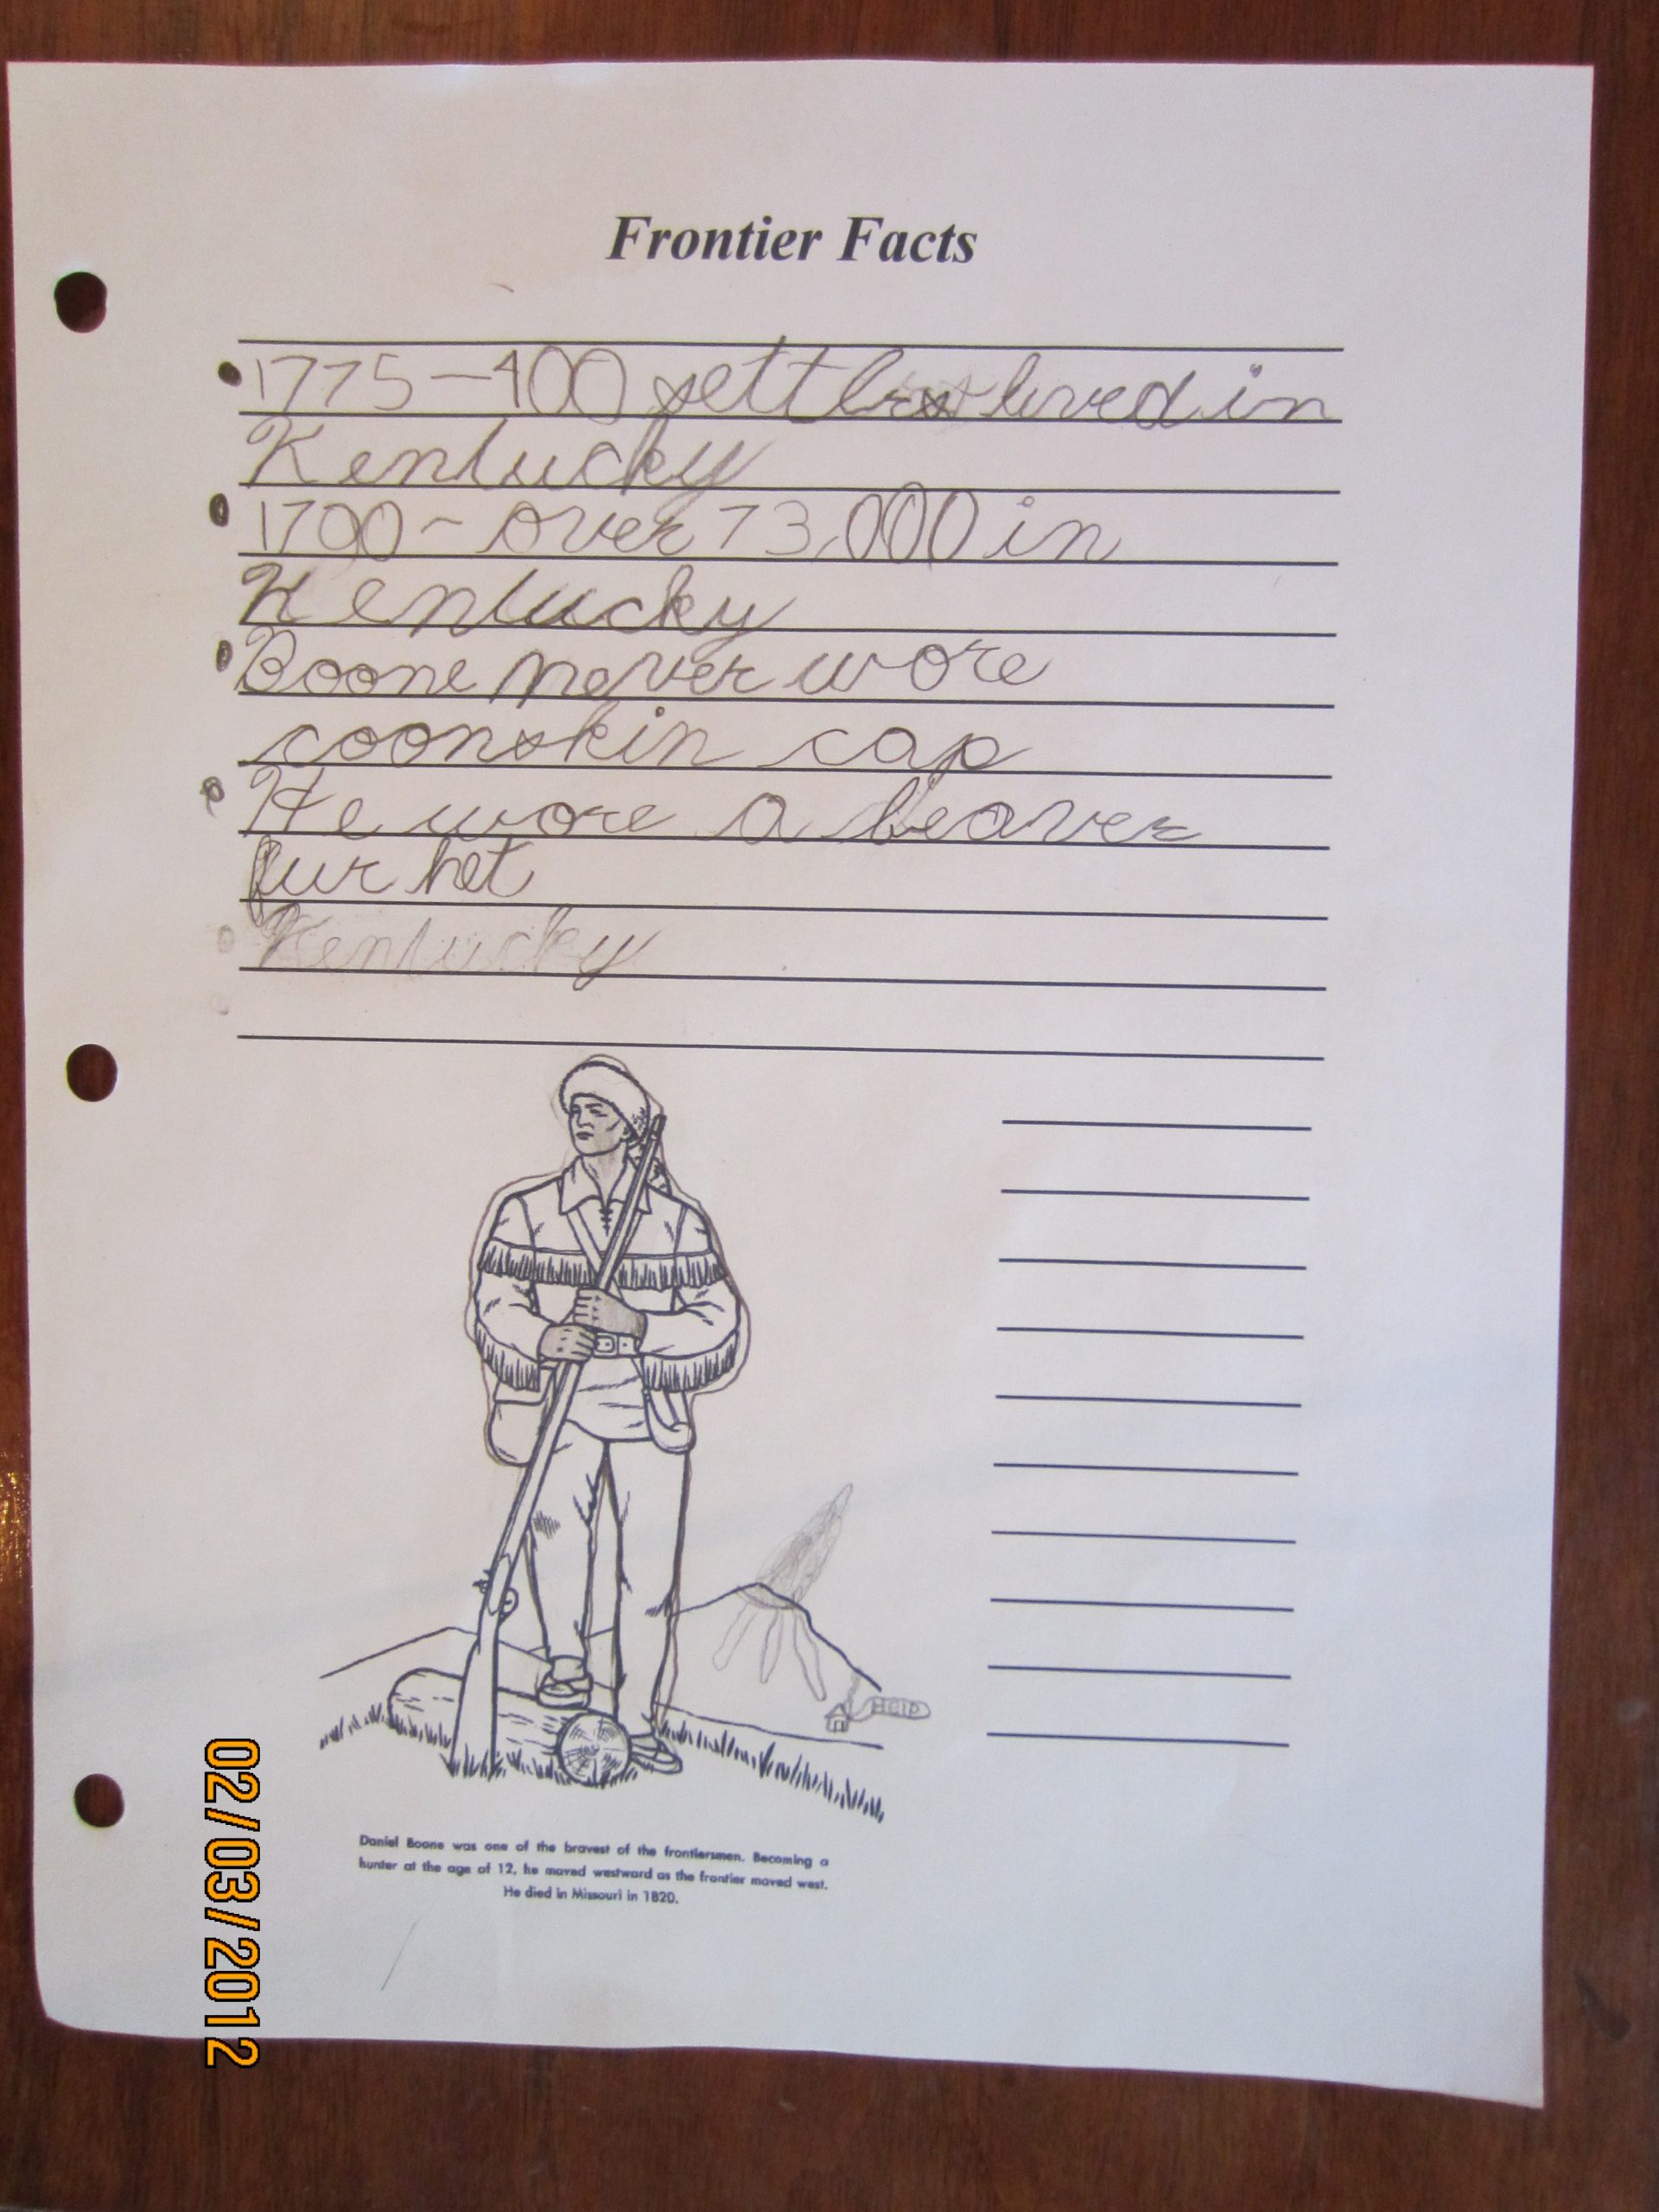 Frontier Facts
1775-400 settlers lived in
Kentucky
1790- over 73,000 in
Kentucky
Boone never wore
coonskin cap
He wore a beaver
fur het
Kentucky
HELP
Daniel Boone was one of the bravest of the frontiersmen. Becoming a
hunter at the age of 12, he moved westward as the frontier moved west.
He died in Missouri in 1820.
02/03/2012